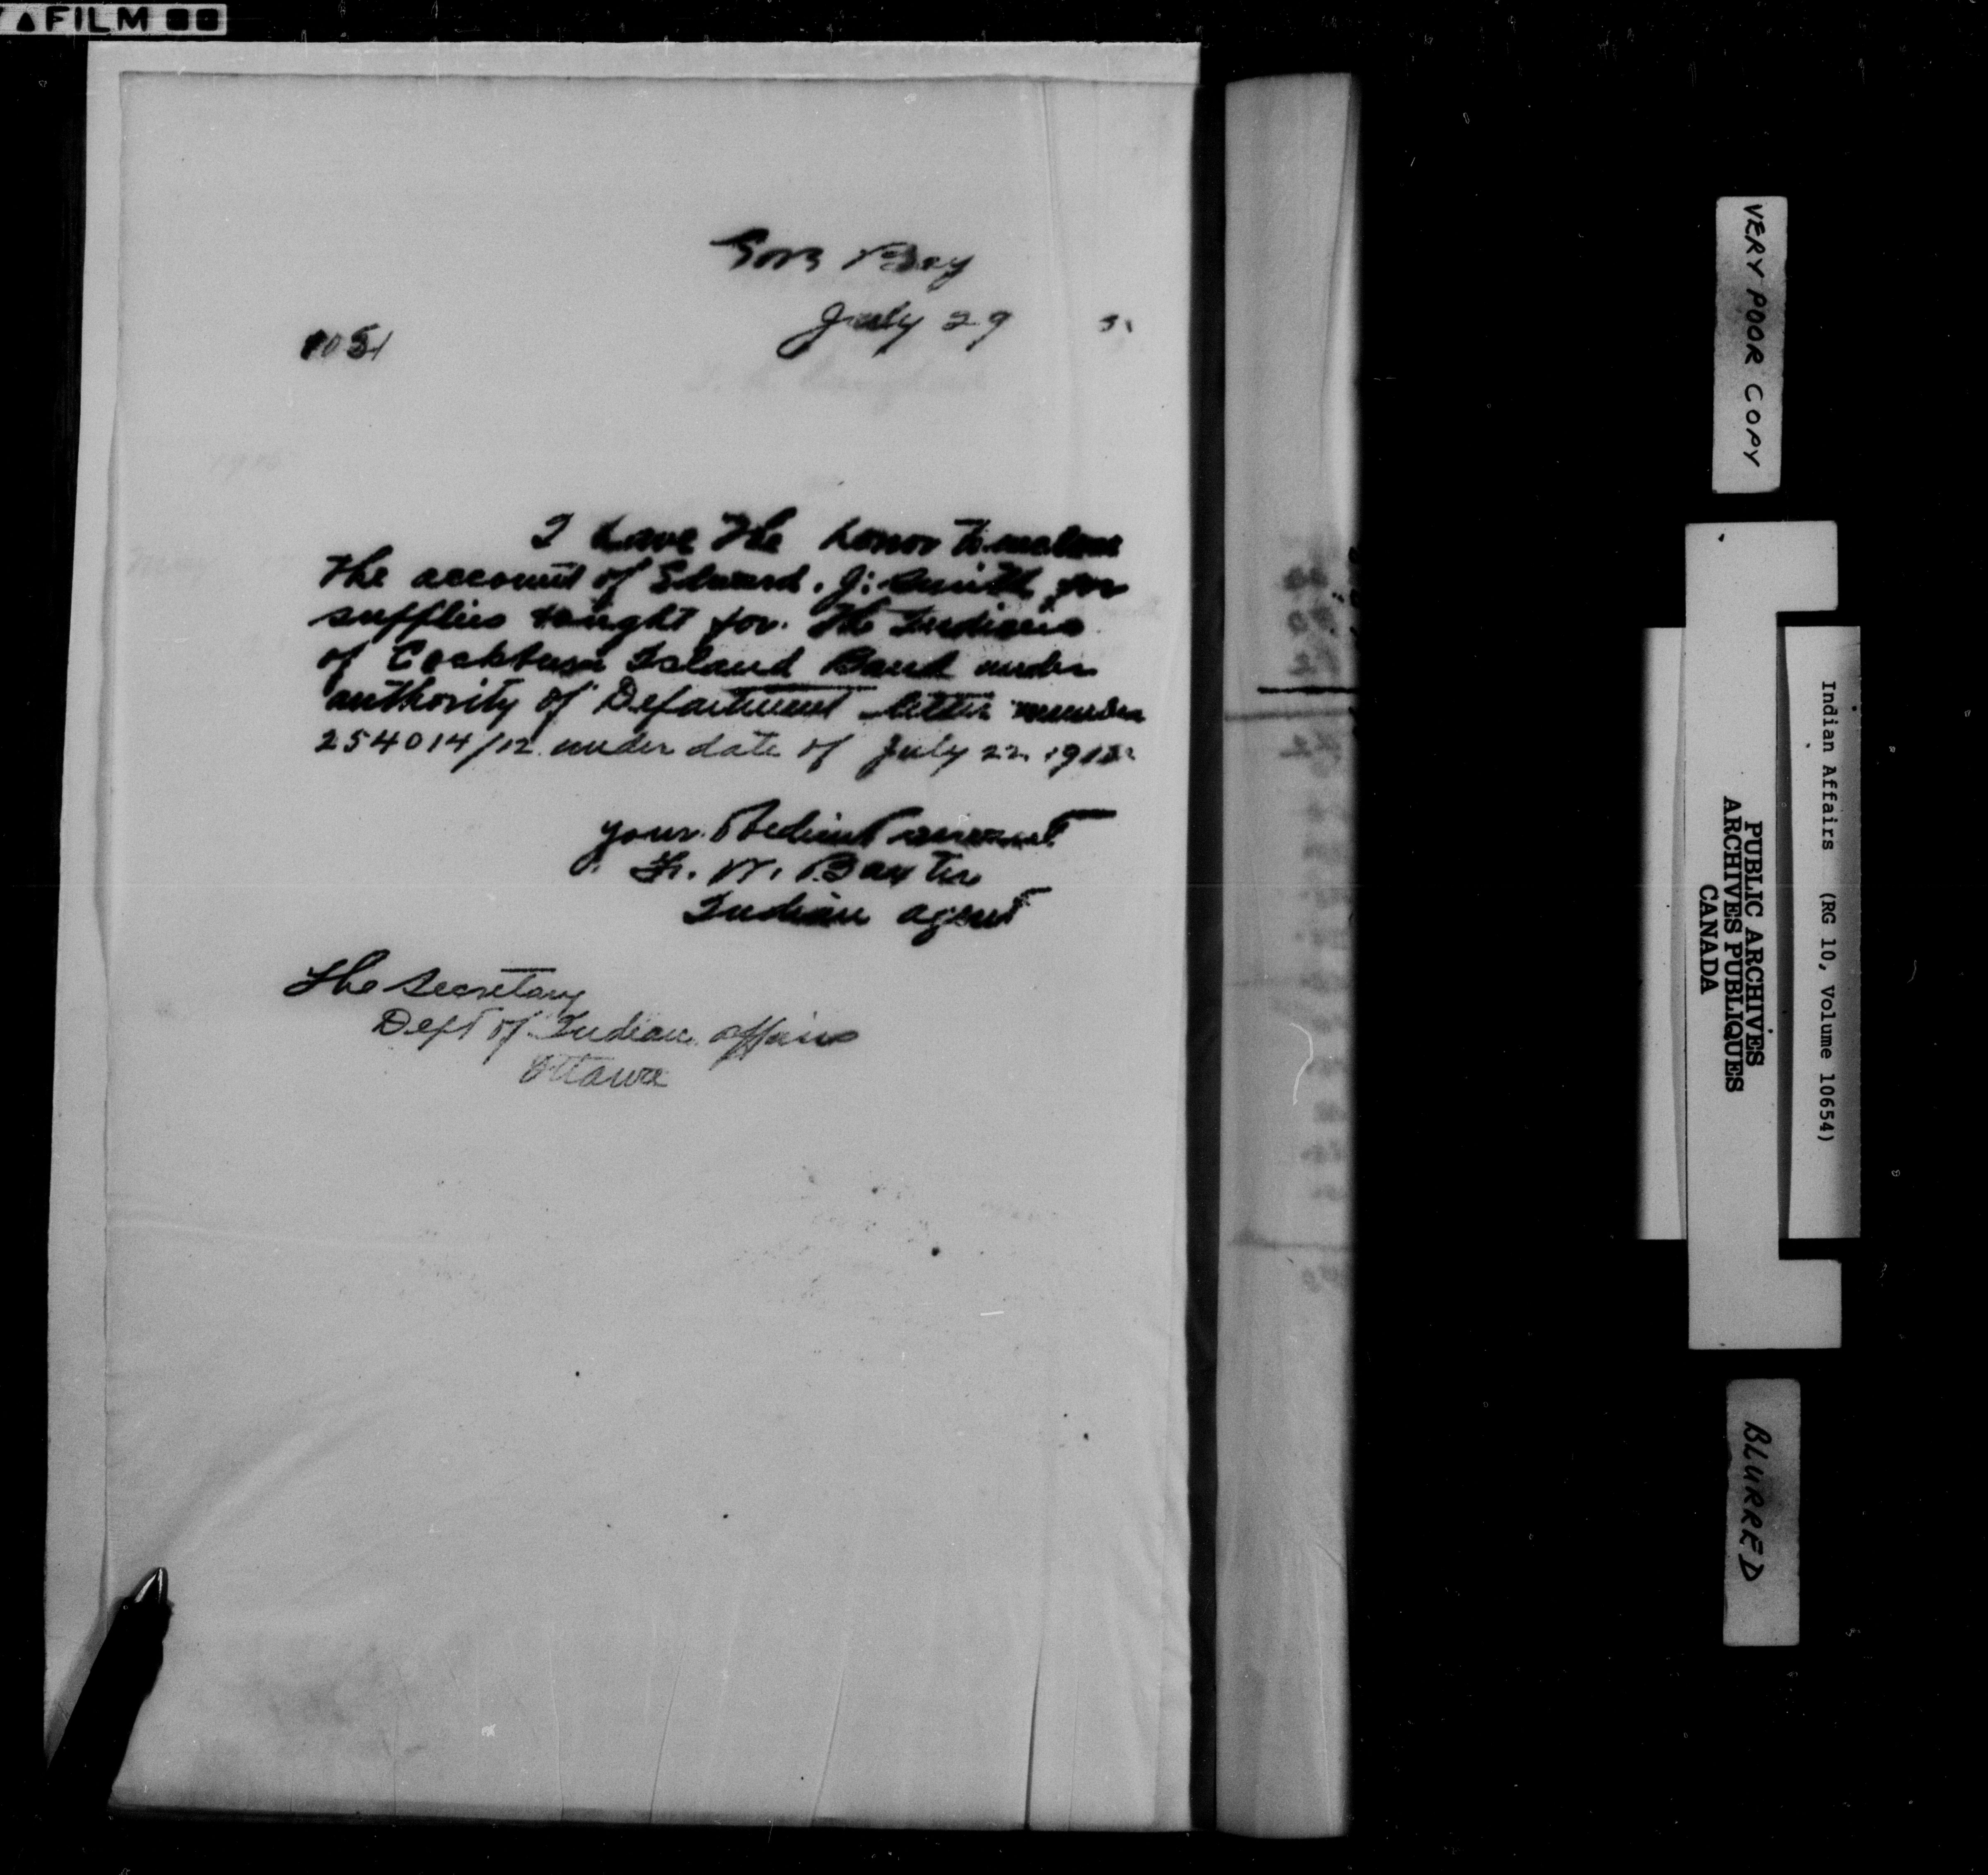 FILM
Gore Bay
July 29
1051
I have the honor to enclose
the account of Edward. J. Smith for
supplies bought for the Indians
of Cockburn Island Band under
authority of Department letter number
254014/12 under date of July 22 1912
your obedient servant
W. Baxter
Indian agent
The Secretary
Dept of Indian affairs
Ottawa
VERY POOR COPY
Indian Affairs (RG 10, Volume 10654)
PUBLIC ARCHIVES
ARCHIVES PUBLIQUES
CANADA
BLURRED